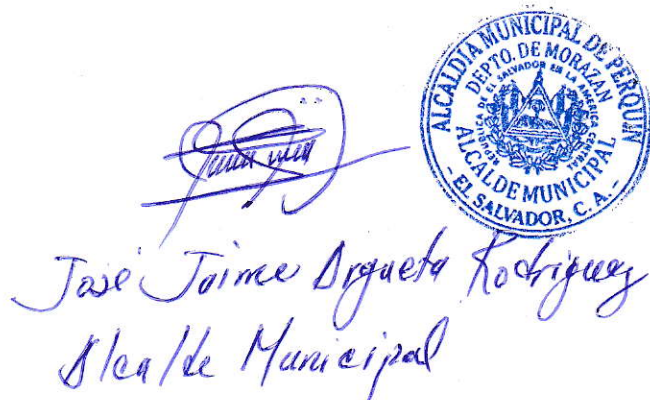 ALCALDÍA MUNICIPAL DE PERQUIN
DEPTO. DE MORAZAN
REPUBLICA DE EL SALVADOR EN LA AMERICA CENTRAL
ALCALDE MUNICIPAL
- EL SALVADOR, C. A. -
José Jaime Argueta Rodriguez
Alcalde Municipal